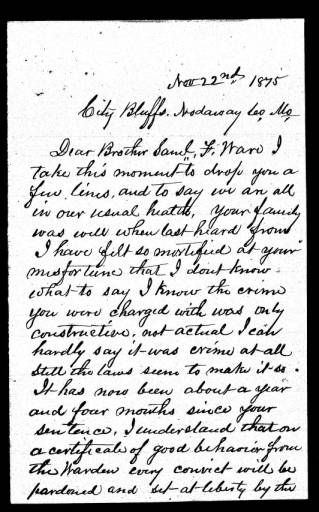 Nov 22nd 1875
City Bluffs. Nodaway Co, Mo,
Dear Brother Saml, F. Ware I
take this moment to drop you a
few lines, and to say we are all
in our usual health, your family
was well when last heard from
I have felt so mortified at your
misfortune that I dont know
what to say I know the crime
you were charged with was only
constructive, not actual I can
hardly say it was crime at all
still the laws seem to make it so.
It has now been about a year
and four months since your
sentence, I understand that on
a certificate of good behavior from
the Warden every convict will be
pardoned and set at liberty by the